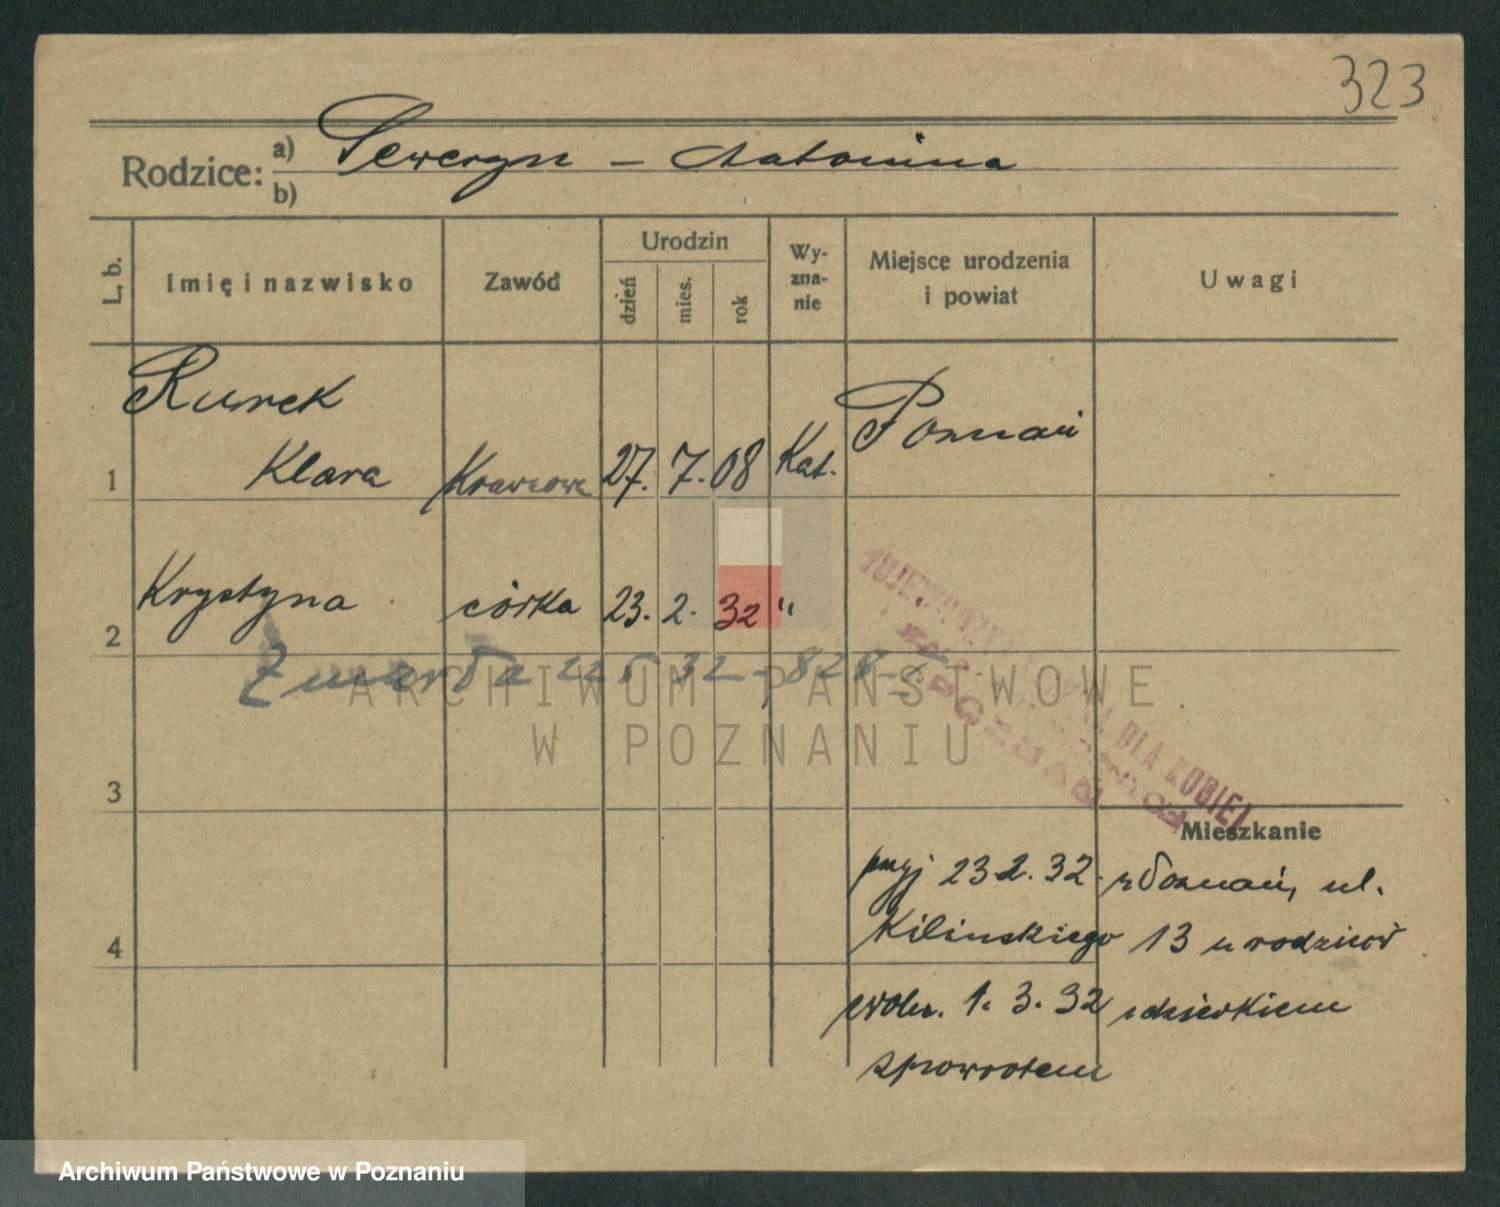 323
Rodzice: a) Seweryn - Antonina
b)
L. b.
Imię i nazwisko
Zawód
Urodzin
dzień
mies.
rok
Wy-
zna-
nie
Miejsce urodzenia
i powiat
Uwagi
Kurek
1 Klara Krawcowa 27. 7. 08 Kat. Poznań
2 Krystyna córka 23. 2. 32 "
Zmarła 22 5 32
ARCHIWUM PAŃSTWOWE
W POZNANIU
DLA KOBIET
3
Mieszkanie
przyj 23.2.32. z Poznań, ul.
4 Kilińskiego 13 u rodziców
zwoln. 1. 3. 32 z dzieckiem
zpowrotem
Archiwum Państwowe w Poznaniu